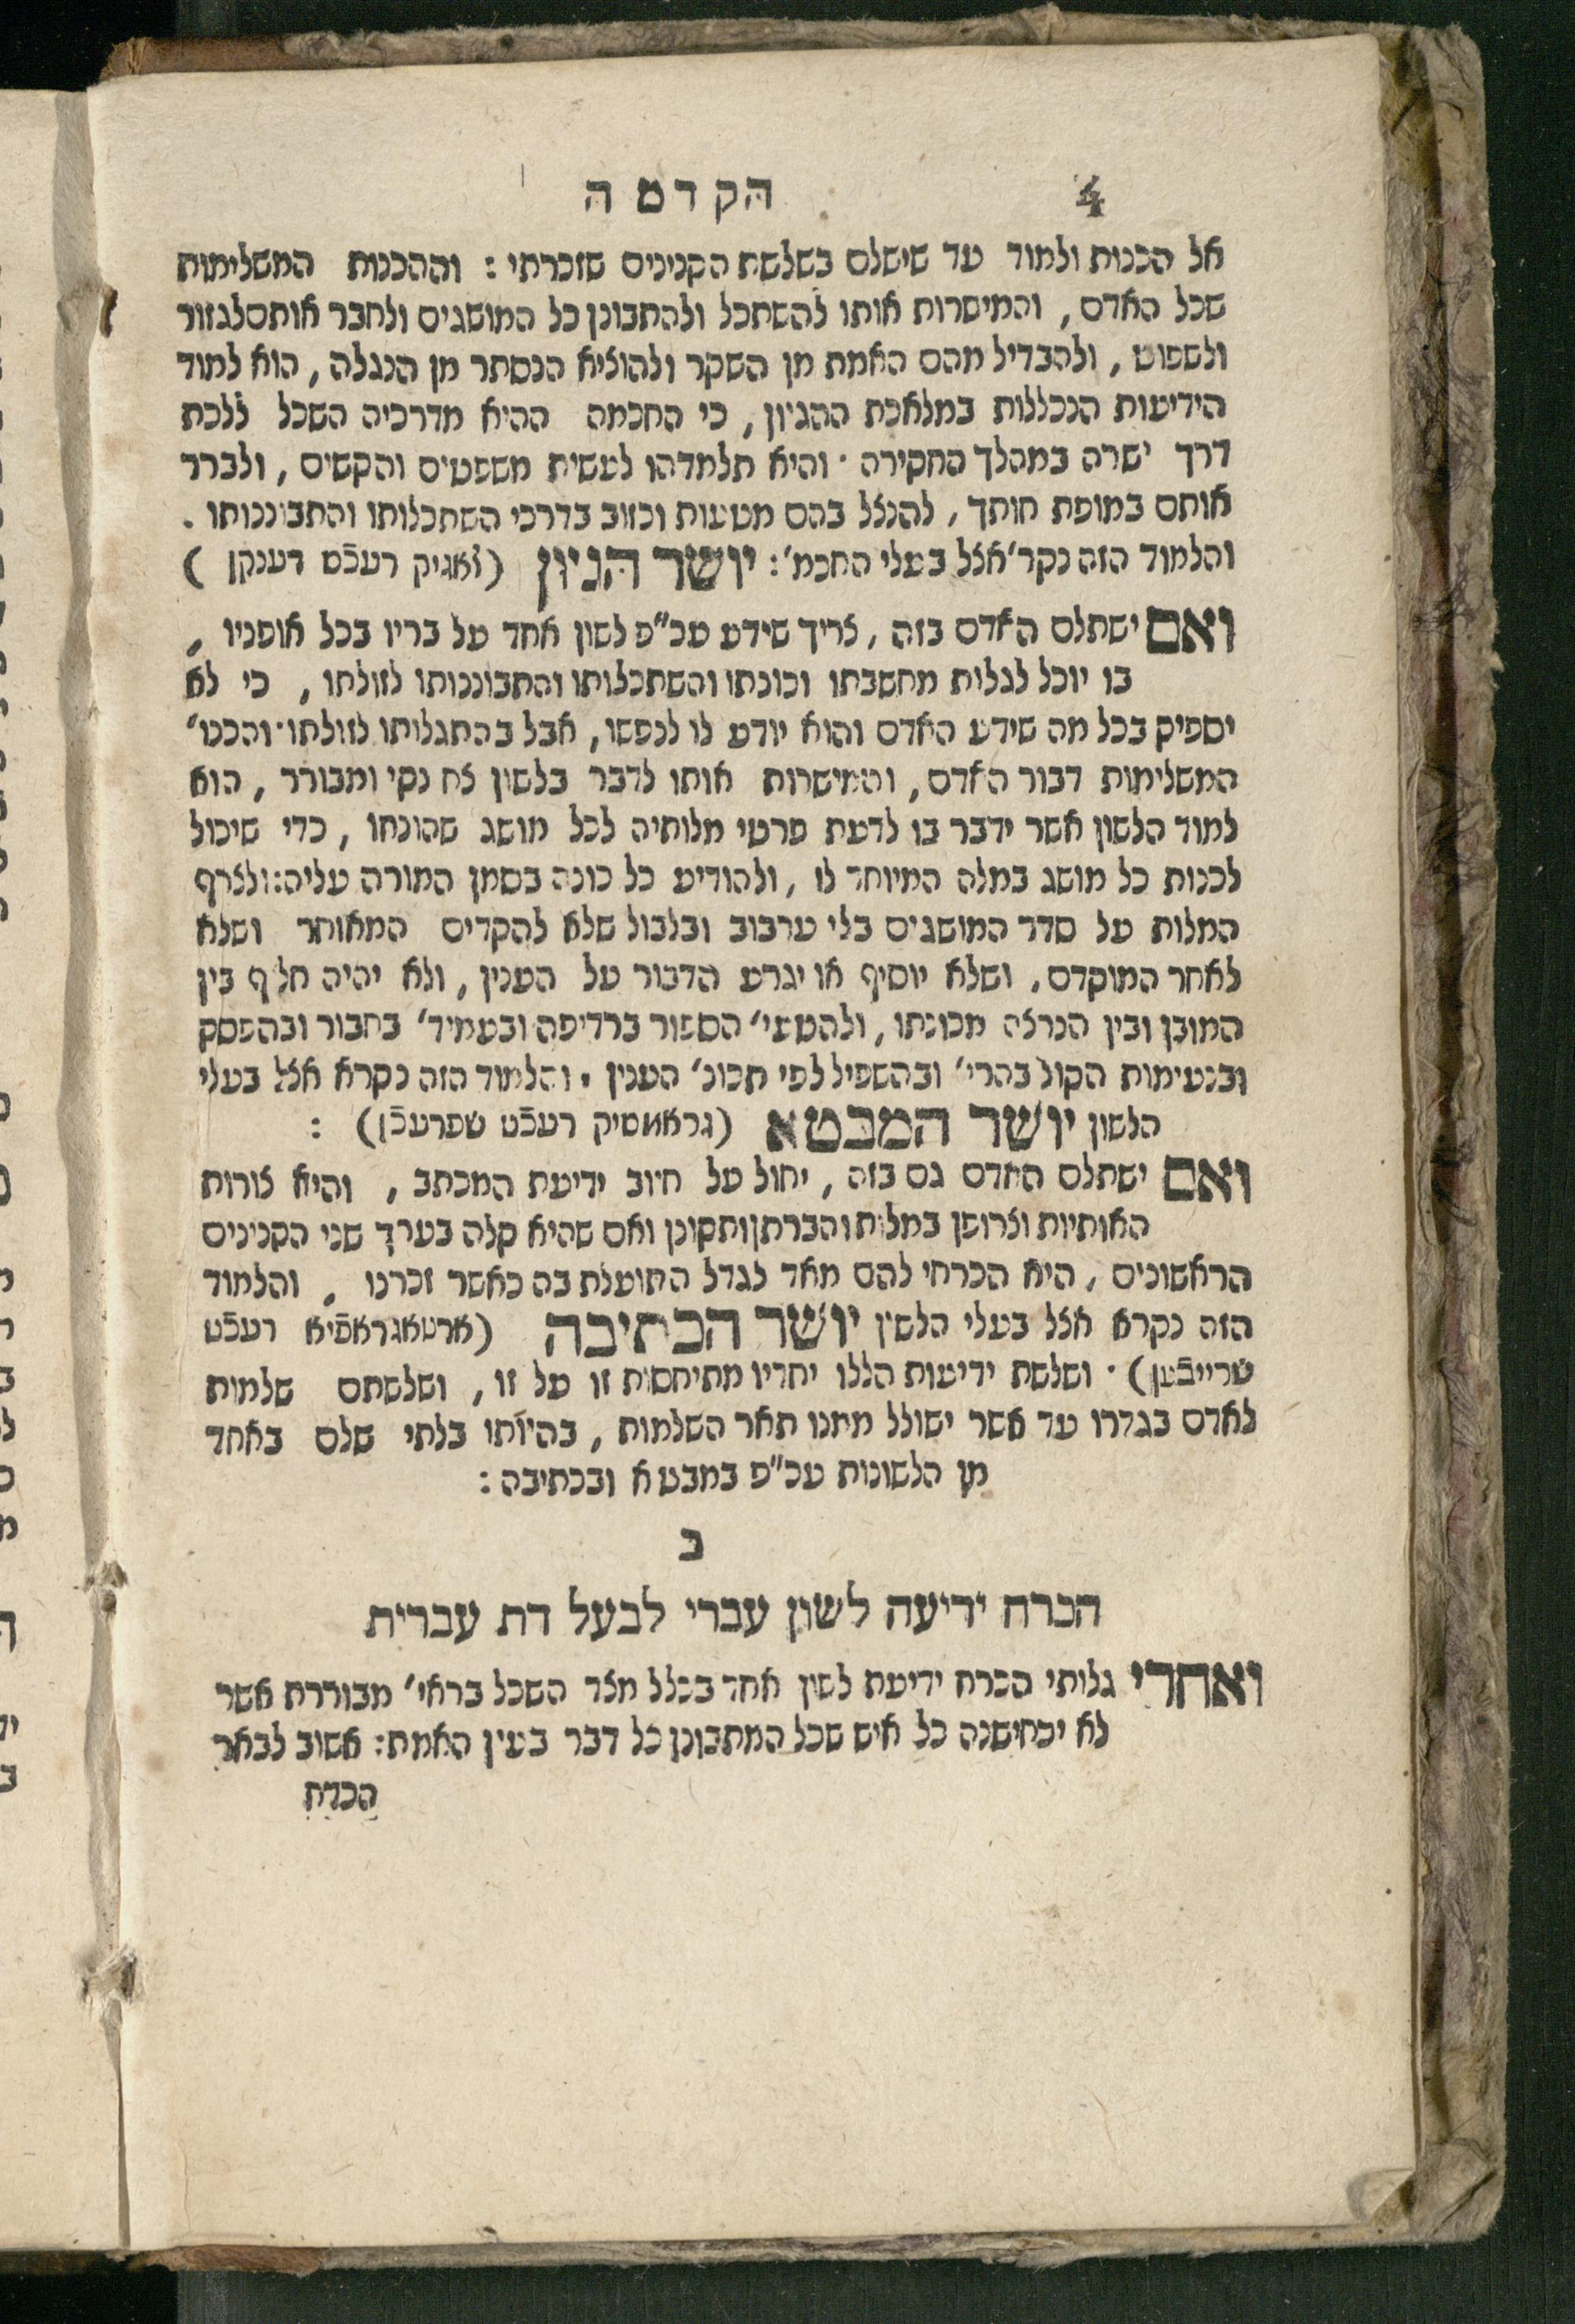 הקדמה 4
אל הכנות ולמוד עד שישלם בשלשת הקנינים שזכרתי: וההכנות המשלימות
שכל האדם, והמישרות אותו להשתכל ולהתבונן כל המושגים ולחבר אותם לגזור
ולשפוט, ולהבדיל מהם האמת מן השקר ולהוציא הנסתר מן הנגלה, הוא למוד
הידיעות הנכללות במלאכת ההגיון, כי החכמה ההיא מדרכיה השכל ללכת
דרך ישרה במהלך החקירה · והיא תלמדהו לעשית משפטים והקשים, ולברר
אותם במופת חותך, להנצל בהם מטעות וכזוב בדרכי השתכלותו והתבוננותו.
והלמוד הזה נקר׳ אצל בעלי החכמ׳: יושר הגיון (לאגיק רעכֿט דענקן)
ואם ישתלם האדם בזה, צריך שידע עכ״פ לשון אחד על בריו בכל אופניו,
בו יוכל לגלות מחשבתו וכונתו והשתכלותו והתבוננותו לזולתו, כי לא
יספיק בכל מה שידע האדם והוא יודע לו לנפשו, אבל בהתגלותו לזולתו· והכנו׳
המשלימות דבור האדם, והמישרות אותו לדבר בלשון צח נקי ומבורר, הוא
למוד הלשון אשר ידבר בו לדעת פרטי מלותיה לכל מושג שהונחו, כדי שיכול
לכנות כל מושג במלה המיוחד לו, ולהודיע כל כונה בסמן המורה עליה: ולצרף
המלות על סדר המושגים בלי ערבוב ובלבול שלא להקדים המאוחר ושלא
לאחר המוקדם, ושלא יוסיף או יגרע הדבור על הענין, ולא יהיה חלוף בין
המובן ובין הנרצה מכונתו, ולהטעי׳ הספור ברדיפה ובעמיד׳ בחבור ובהפסק
ובנעימות הקול בהרי׳ ובהשפיל לפי תכונ׳ הענין. והלמוד הזה נקרא אצל בעלי
הלשון יושר המבטא (גראמטיק רעכֿט שפרעכֿן):
ואם ישתלם האדם גם בזה, יחול על חיוב ידיעת המכתב, והיא צורות
האותיות וצרופן במלות והברתן ותקונן ואם שהיא קלה בערך שני הקנינים
הראשונים, היא הכרחי להם מאד לגדל התועלת בה כאשר זכרנו, והלמוד
הזה נקרא אצל בעלי הלשון יושר הכתיבה (ארטאגראפֿיא רעכֿט
שרייבֿען) · ושלשת ידיעות הללו יחדיו מתיחסות זו על זו, ושלשתם שלמות
לאדם בגדרו עד אשר ישולל ממנו תאר השלמות, בהיותו בלתי שלם באחד
מן הלשונות עכ״פ במבטא ובכתיבה:
ב
הכרח ידיעה לשון עברי לבעל דת עברית
ואחרי גלותי הכרח ידיעת לשון אחד בכלל מצד השכל בראי׳ מבוררת אשר
לא יכחישנה כל איש שכל המתבונן כל דבר בעין האמת: אשוב לבאר
הכרח